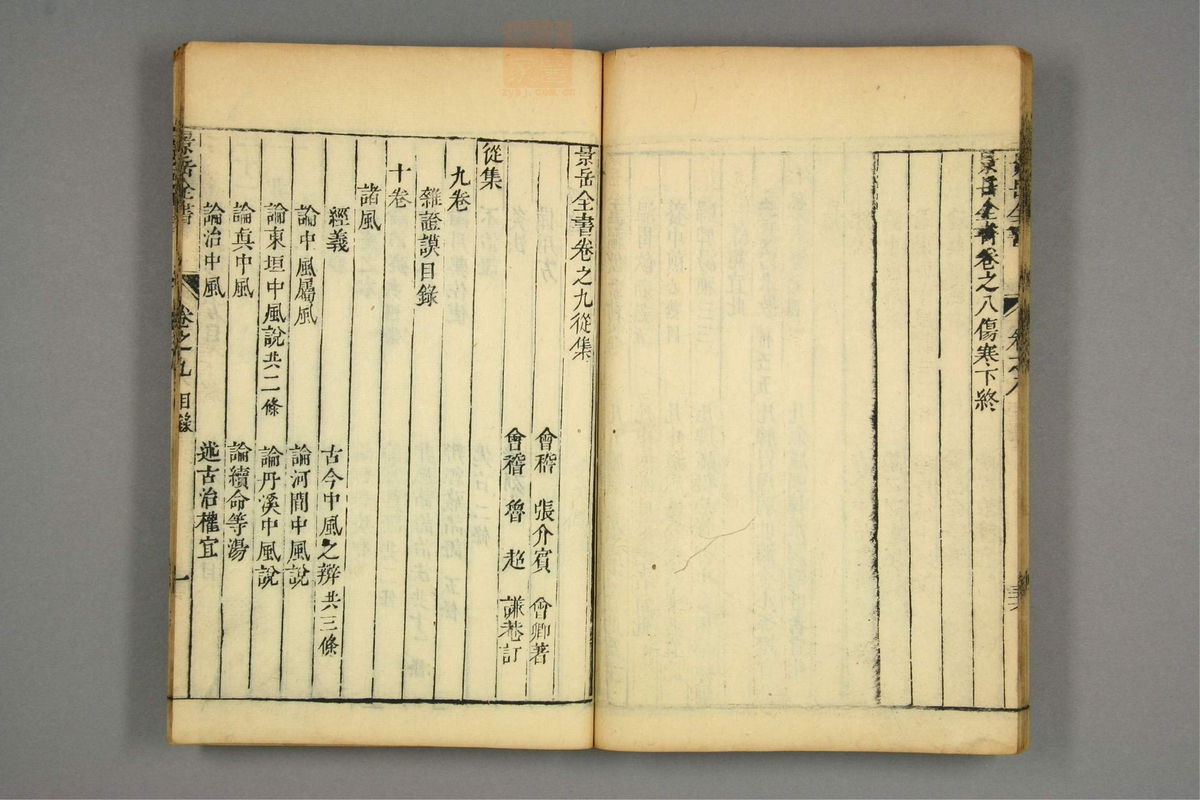 景岳全書 卷之八
景岳全書卷之八傷寒下終
景岳全書卷之九從集
會稽 張介賓 會卿著
會稽 魯 超 謙菴訂
從集
九卷
雜證謨目錄
十卷
諸風
經義 古今中風之辨共三條
論中風屬風 論河間中風說
論東垣中風說共二條 論丹溪中風說
論真中風 論續命等湯
論治中風 述古治權宜
景岳全書 卷之九 目錄 一
zysj.com.cn